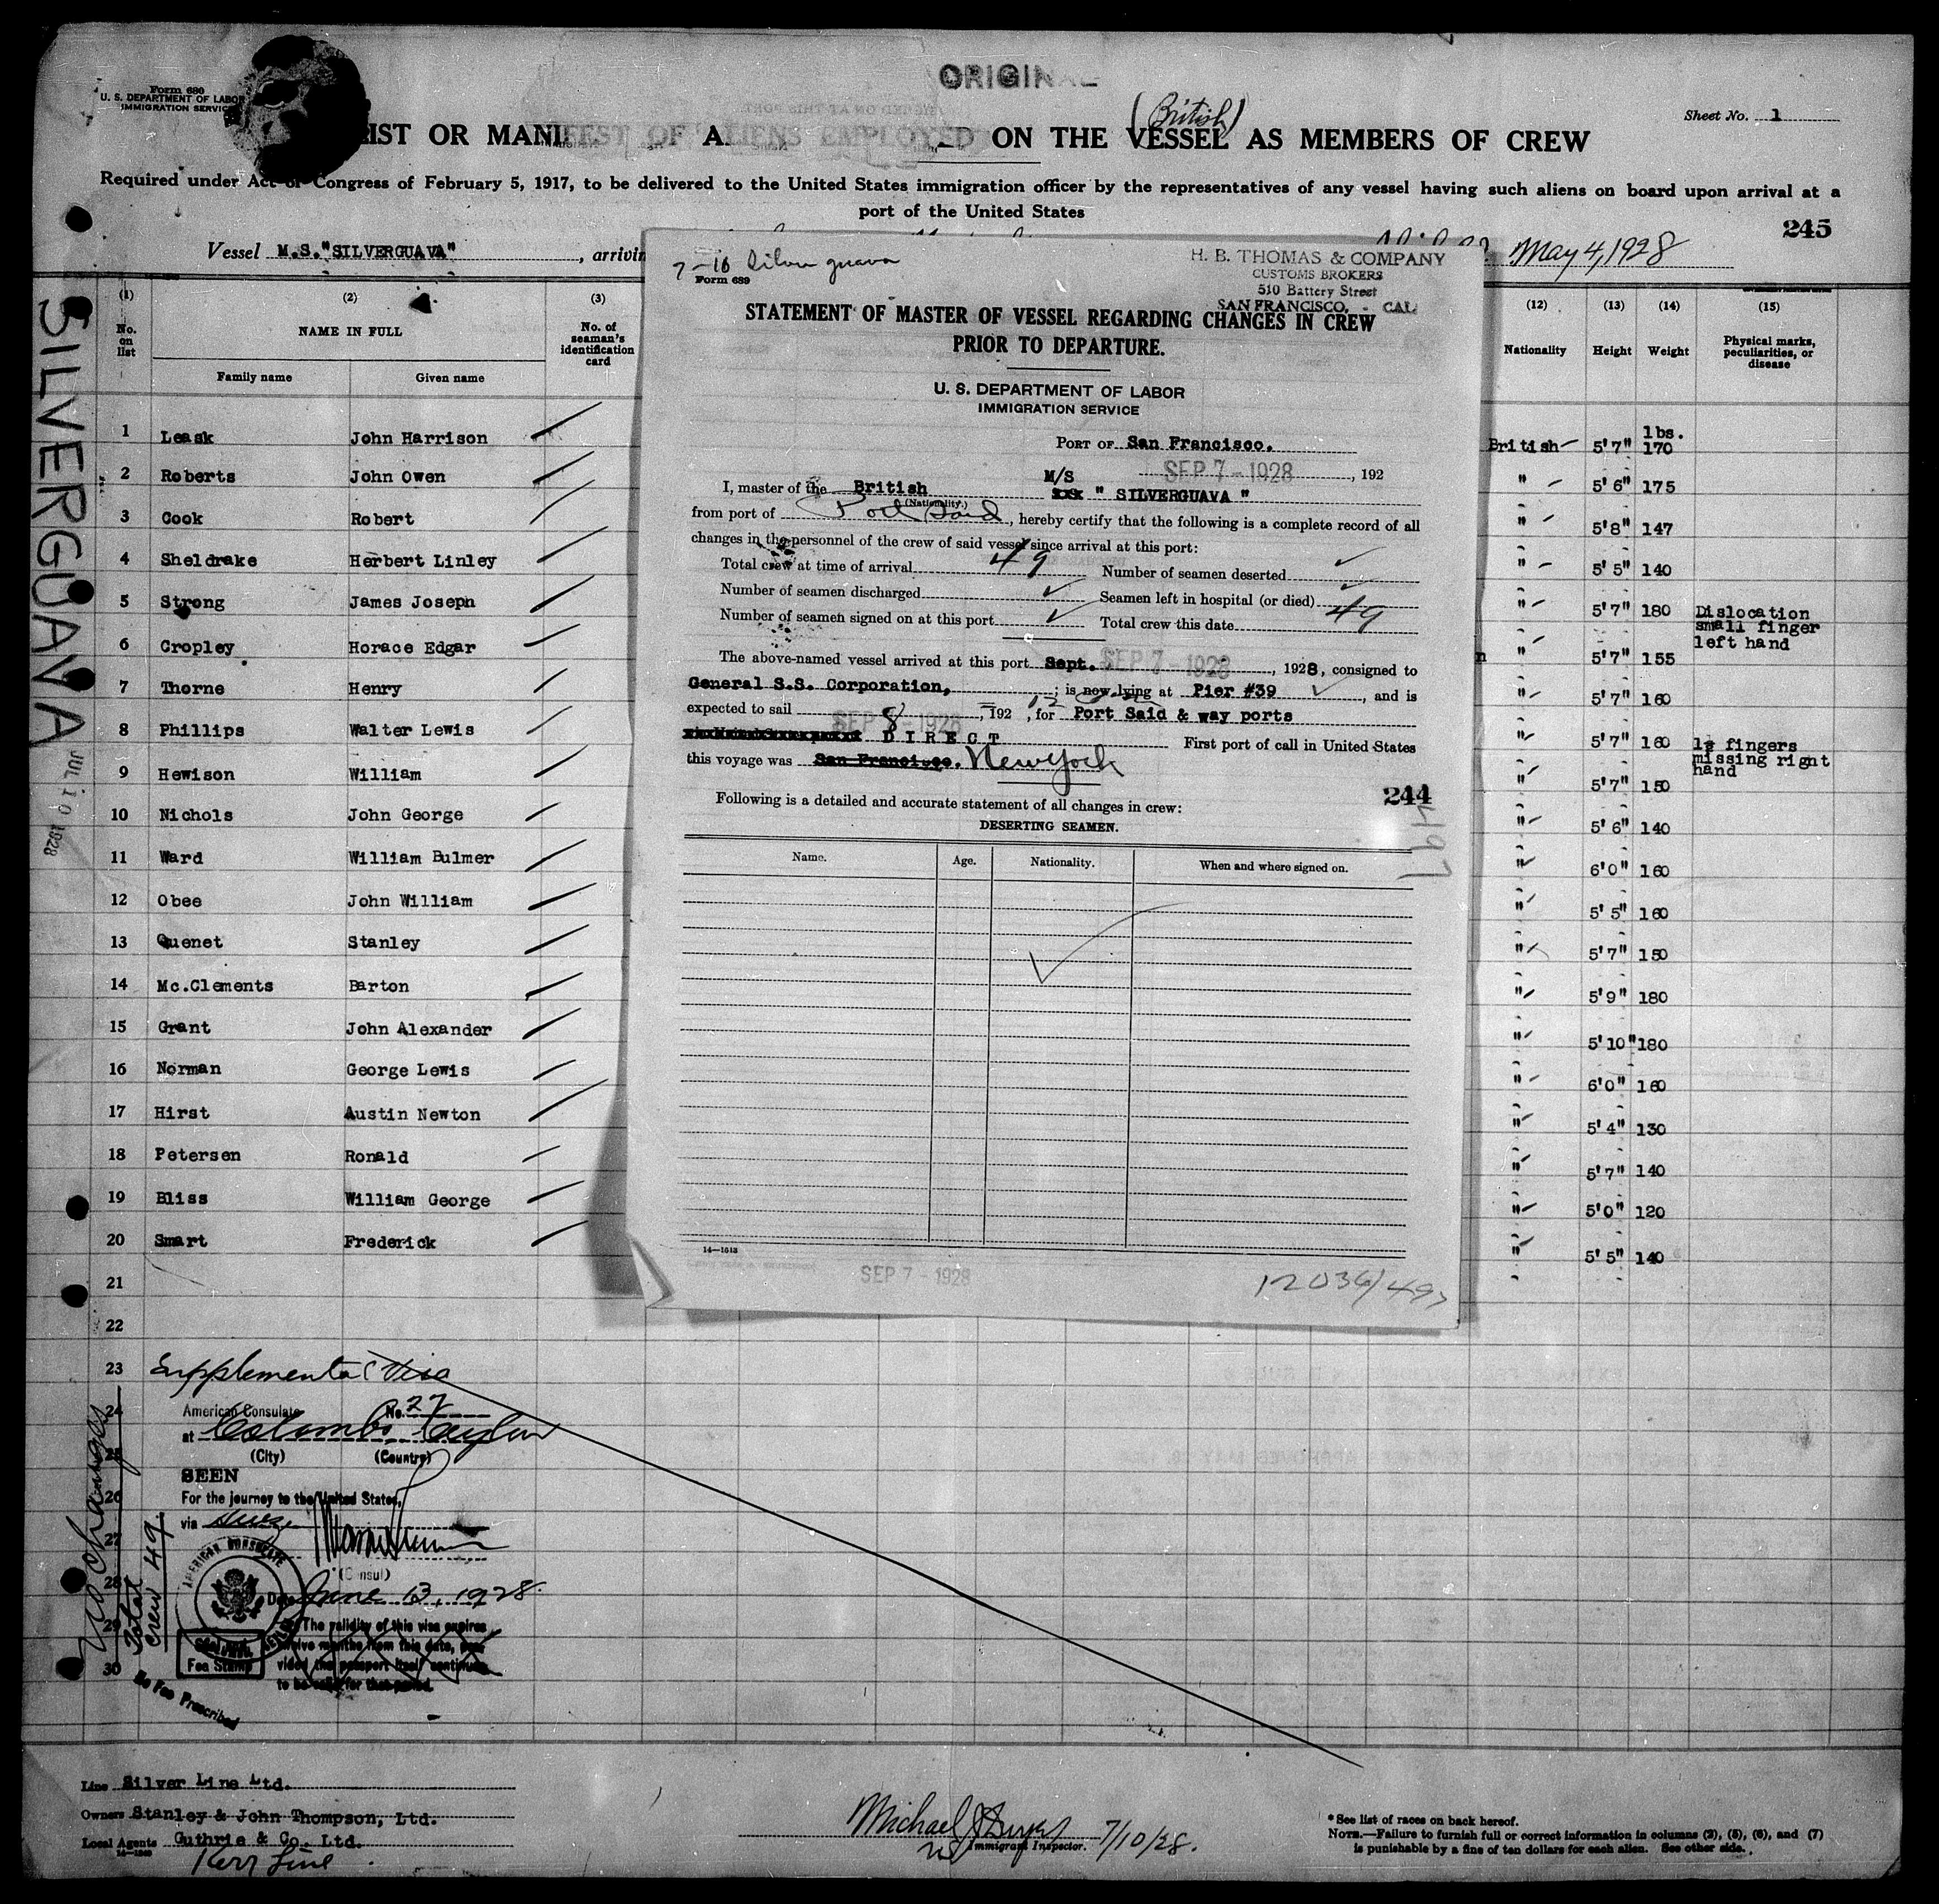 ORIGINAL
Form 680
U. S. DEPARTMENT OF LABOR
IMMIGRATION SERVICE
Sheet No. 1
(British)
LIST OR MANIFEST OF ALIENS EMPLOYED ON THE VESSEL AS MEMBERS OF CREW
Required under Act of Congress of February 5, 1917, to be delivered to the United States immigration officer by the representatives of any vessel having such aliens on board upon arrival at a
port of the United States
245
Vessel M.S."SILVERGUAVA", arriving
May 4, 1928
SILVERGUAVA
JUL 10 1928
(1) (2) (3)
No. on list
NAME IN FULL
No. of seaman's identification card
Family name Given name
1 Leask John Harrison
2 Roberts John Owen
3 Cook Robert
4 Sheldrake Herbert Linley
5 Strong James Joseph
6 Cropley Horace Edgar
7 Thorne Henry
8 Phillips Walter Lewis
9 Hewison William
10 Nichols John George
11 Ward William Bulmer
12 Obee John William
13 Quenet Stanley
14 Mc.Clements Barton
15 Grant John Alexander
16 Norman George Lewis
17 Hirst Austin Newton
18 Petersen Ronald
19 Bliss William George
20 Smart Frederick
21
22
23
24
25
26
27
28
29
30
7-16 Silverguava
Form 689
H. B. THOMAS & COMPANY
CUSTOMS BROKERS
510 Battery Street
SAN FRANCISCO, - CAL.
STATEMENT OF MASTER OF VESSEL REGARDING CHANGES IN CREW
PRIOR TO DEPARTURE.
U. S. DEPARTMENT OF LABOR
IMMIGRATION SERVICE
PORT OF San Francisco.
SEP 7 - 1928, 192
I, master of the British M/S xxx " SILVERGUAVA "
(Nationality.)
from port of Port Said, hereby certify that the following is a complete record of all
changes in the personnel of the crew of said vessel since arrival at this port:
Total crew at time of arrival 49 Number of seamen deserted
Number of seamen discharged Seamen left in hospital (or died)
Number of seamen signed on at this port Total crew this date 49
The above-named vessel arrived at this port Sept. SEP 7 - 1928, 1928, consigned to
General S.S. Corporation, ; is now lying at Pier #39, and is
expected to sail SEP 8 1928, 192 , for Port Said & way ports
DIRECT First port of call in United States
this voyage was San Francisco. New York
Following is a detailed and accurate statement of all changes in crew:
244
DESERTING SEAMEN.
497
Name. Age. Nationality. When and where signed on.
14—1513
SEP 7 - 1928
12036/497
(12) (13) (14) (15)
Nationality Height Weight Physical marks, peculiarities, or disease
lbs.
British 5'7" 170
" 5'6" 175
" 5'8" 147
" 5'5" 140
" 5'7" 180 Dislocation small finger left hand
" 5'7" 155
" 5'7" 160
" 5'7" 160 1½ fingers missing right hand
" 5'7" 150
" 5'6" 140
" 6'0" 160
" 5'5" 160
" 5'7" 150
" 5'9" 180
" 5'10" 180
" 6'0" 160
" 5'4" 130
" 5'7" 140
" 5'0" 120
" 5'5" 140
Supplemental Visa
American Consulate No. 27
at Colombo, Ceylon
(City) (Country)
SEEN
For the journey to the United States,
via Suez
(Consul)
AMERICAN CONSULATE
Date June 13, 1928.
The validity of this visa expires
twelve months from this date, pro-
vided the passport itself continues
to be valid for that period.
Fee Stamp
No Fee Prescribed
No changes
Total crew 49.
Line Silver Line Ltd.
Owners Stanley & John Thompson, Ltd.
Local Agents Guthrie & Co. Ltd.
Kerr Line
Michael
Immigrant Inspector. 7/10/28.
* See list of races on back hereof.
NOTE.—Failure to furnish full or correct information in columns (2), (5), (6), and (7)
is punishable by a fine of ten dollars for each alien. See other side.